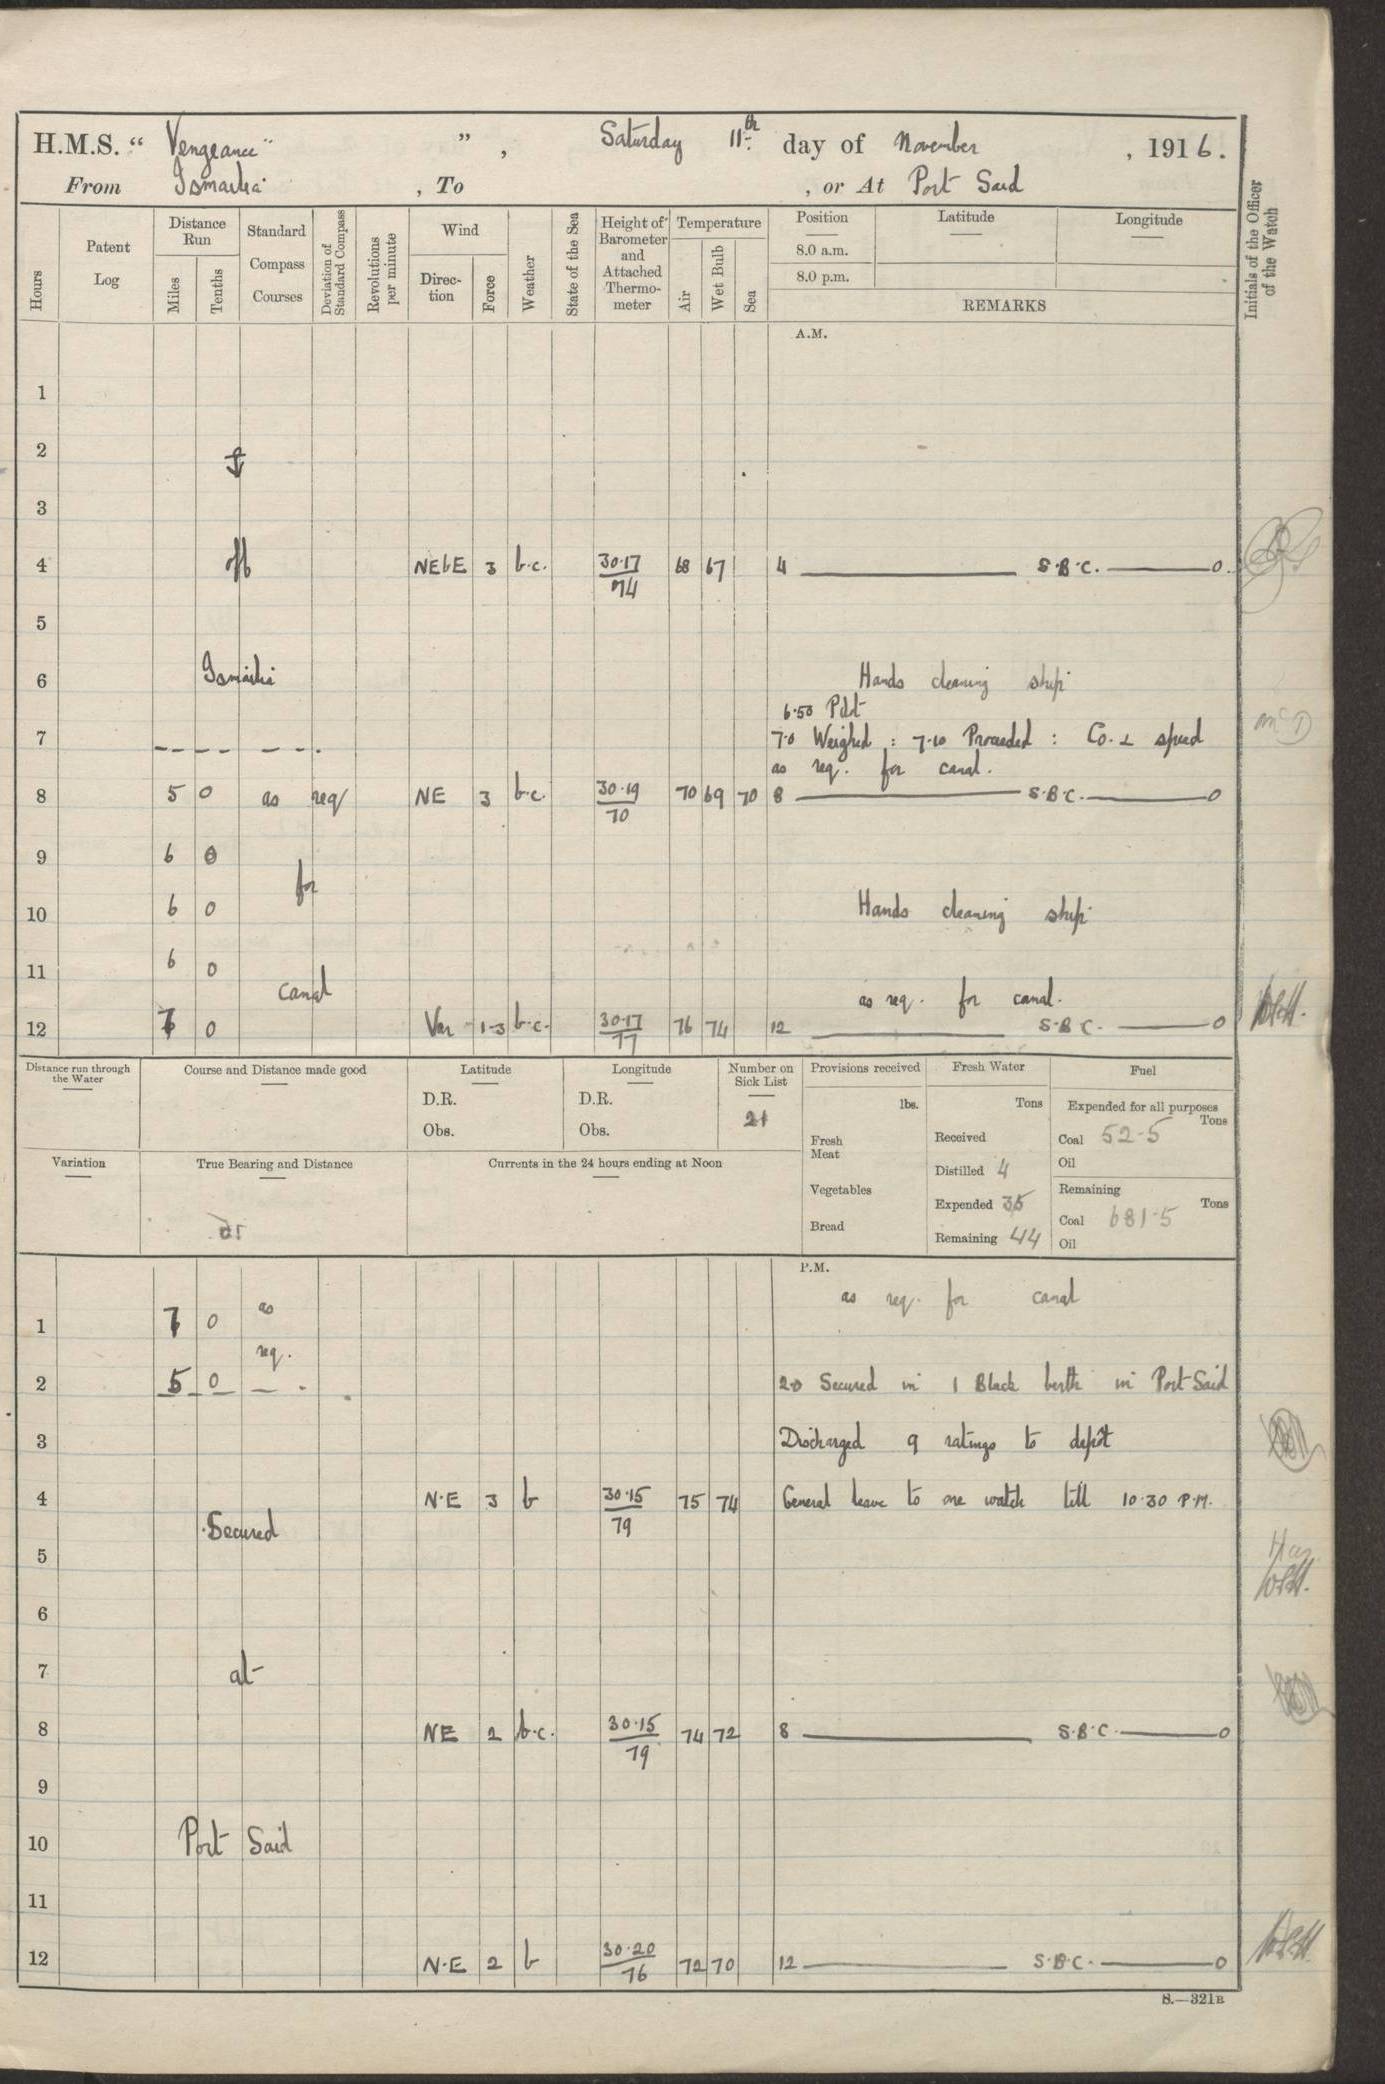 H.M.S. " Vengeance " , Saturday 11th day of November , 1916.
From Ismailia , To , or At Port Said
Hours
Patent Log
Distance Run
Miles
Tenths
Standard Compass Courses
Deviation of Standard Compass
Revolutions per minute
Wind
Direction
Force
Weather
State of the Sea
Height of Barometer and Attached Thermometer
Temperature
Air
Wet Bulb
Sea
Position
Latitude
Longitude
8.0 a.m.
8.0 p.m.
REMARKS
Initials of the Officer of the Watch
A.M.
1
2
3
4 off NEbE 3 b.c. 30.17 / 74 68 67 4 S.B.C. 0
5
6 Ismailia Hands cleaning ship
6.50 Pilot
7 7.0 Weighed : 7.10 Proceeded : Co. & speed
as req. for canal.
8 5 0 as req NE 3 b.c. 30.19 / 70 70 69 70 8 S.B.C. 0
9 6 0
for
10 6 0 Hands cleaning ship
11 6 0
canal as req. for canal.
12 7 0 Var 1-3 b.c. 30.17 / 77 76 74 12 S.B.C. 0
Distance run through the Water
Course and Distance made good
Latitude
D.R.
Obs.
Longitude
D.R.
Obs.
Number on Sick List
21
Provisions received
lbs.
Fresh Meat
Vegetables
Bread
Fresh Water
Tons
Received
Distilled 4
Expended 35
Remaining 44
Fuel
Expended for all purposes
Tons
Coal 52.5
Oil
Remaining
Tons
Coal 681.5
Oil
Variation
True Bearing and Distance
Currents in the 24 hours ending at Noon
P.M.
as req. for canal
1 7 0 as
req.
2 5 0 2.0 Secured in 1 Black berth in Port Said
3 Discharged 9 ratings to depôt
4 N.E 3 b 30.15 / 79 75 74 General leave to one watch till 10.30 P.M.
Secured
5
6
7 at
8 NE 2 b.c. 30.15 / 79 74 72 8 S.B.C. 0
9
10 Port Said
11
12 N.E 2 b 30.20 / 76 72 70 12 S.B.C. 0
S.—321B